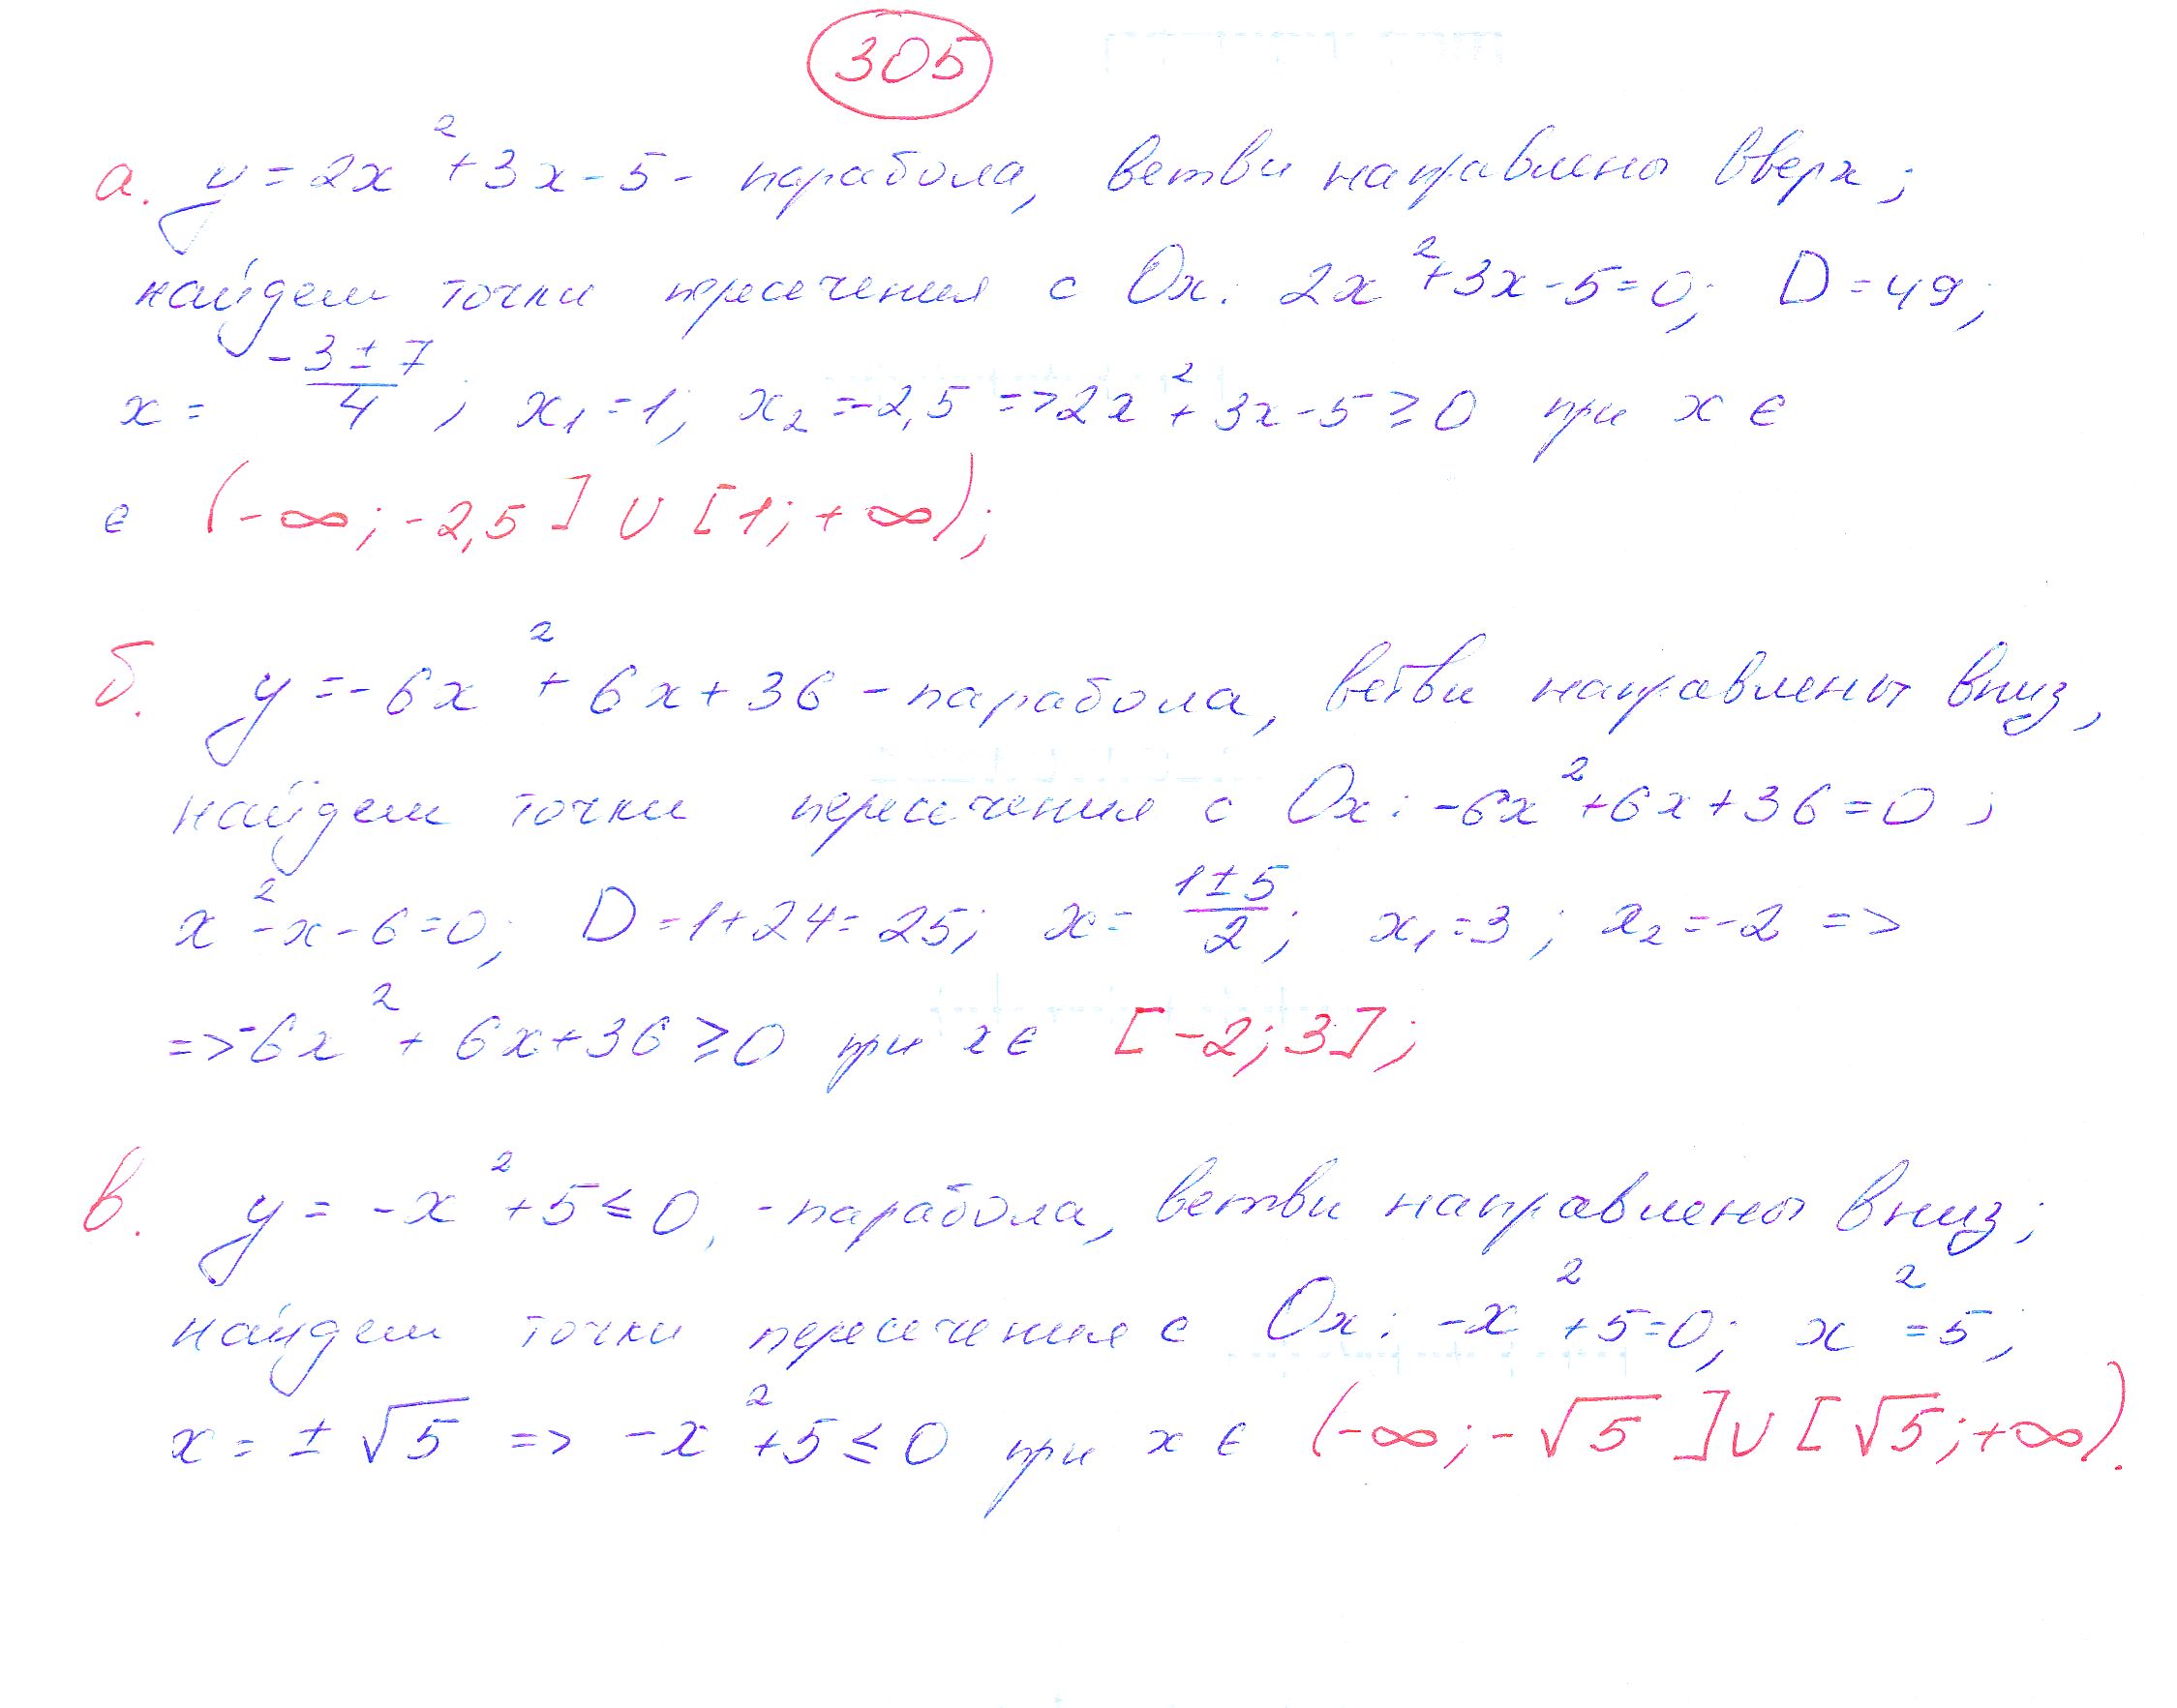 305
а. y = 2x² + 3x - 5 - парабола, ветви направлены вверх;
найдем точки пересечения с Ox: 2x² + 3x - 5 = 0; D = 49;
x = (-3 ± 7)/4; x₁ = 1; x₂ = -2,5 => 2x² + 3x - 5 ≥ 0 при x ∈
∈ (-∞; -2,5] ∪ [1; +∞);
б. y = -6x² + 6x + 36 - парабола, ветви направлены вниз,
найдем точки пересечения с Ox: -6x² + 6x + 36 = 0;
x² - x - 6 = 0; D = 1 + 24 = 25; x = (1 ± 5)/2; x₁ = 3; x₂ = -2 =>
=> -6x² + 6x + 36 ≥ 0 при x ∈ [-2; 3];
в. y = -x² + 5 ≤ 0, - парабола, ветви направлены вниз;
найдем точки пересечения с Ox: -x² + 5 = 0; x² = 5;
x = ± √5 => -x² + 5 ≤ 0 при x ∈ (-∞; -√5] ∪ [√5; +∞).